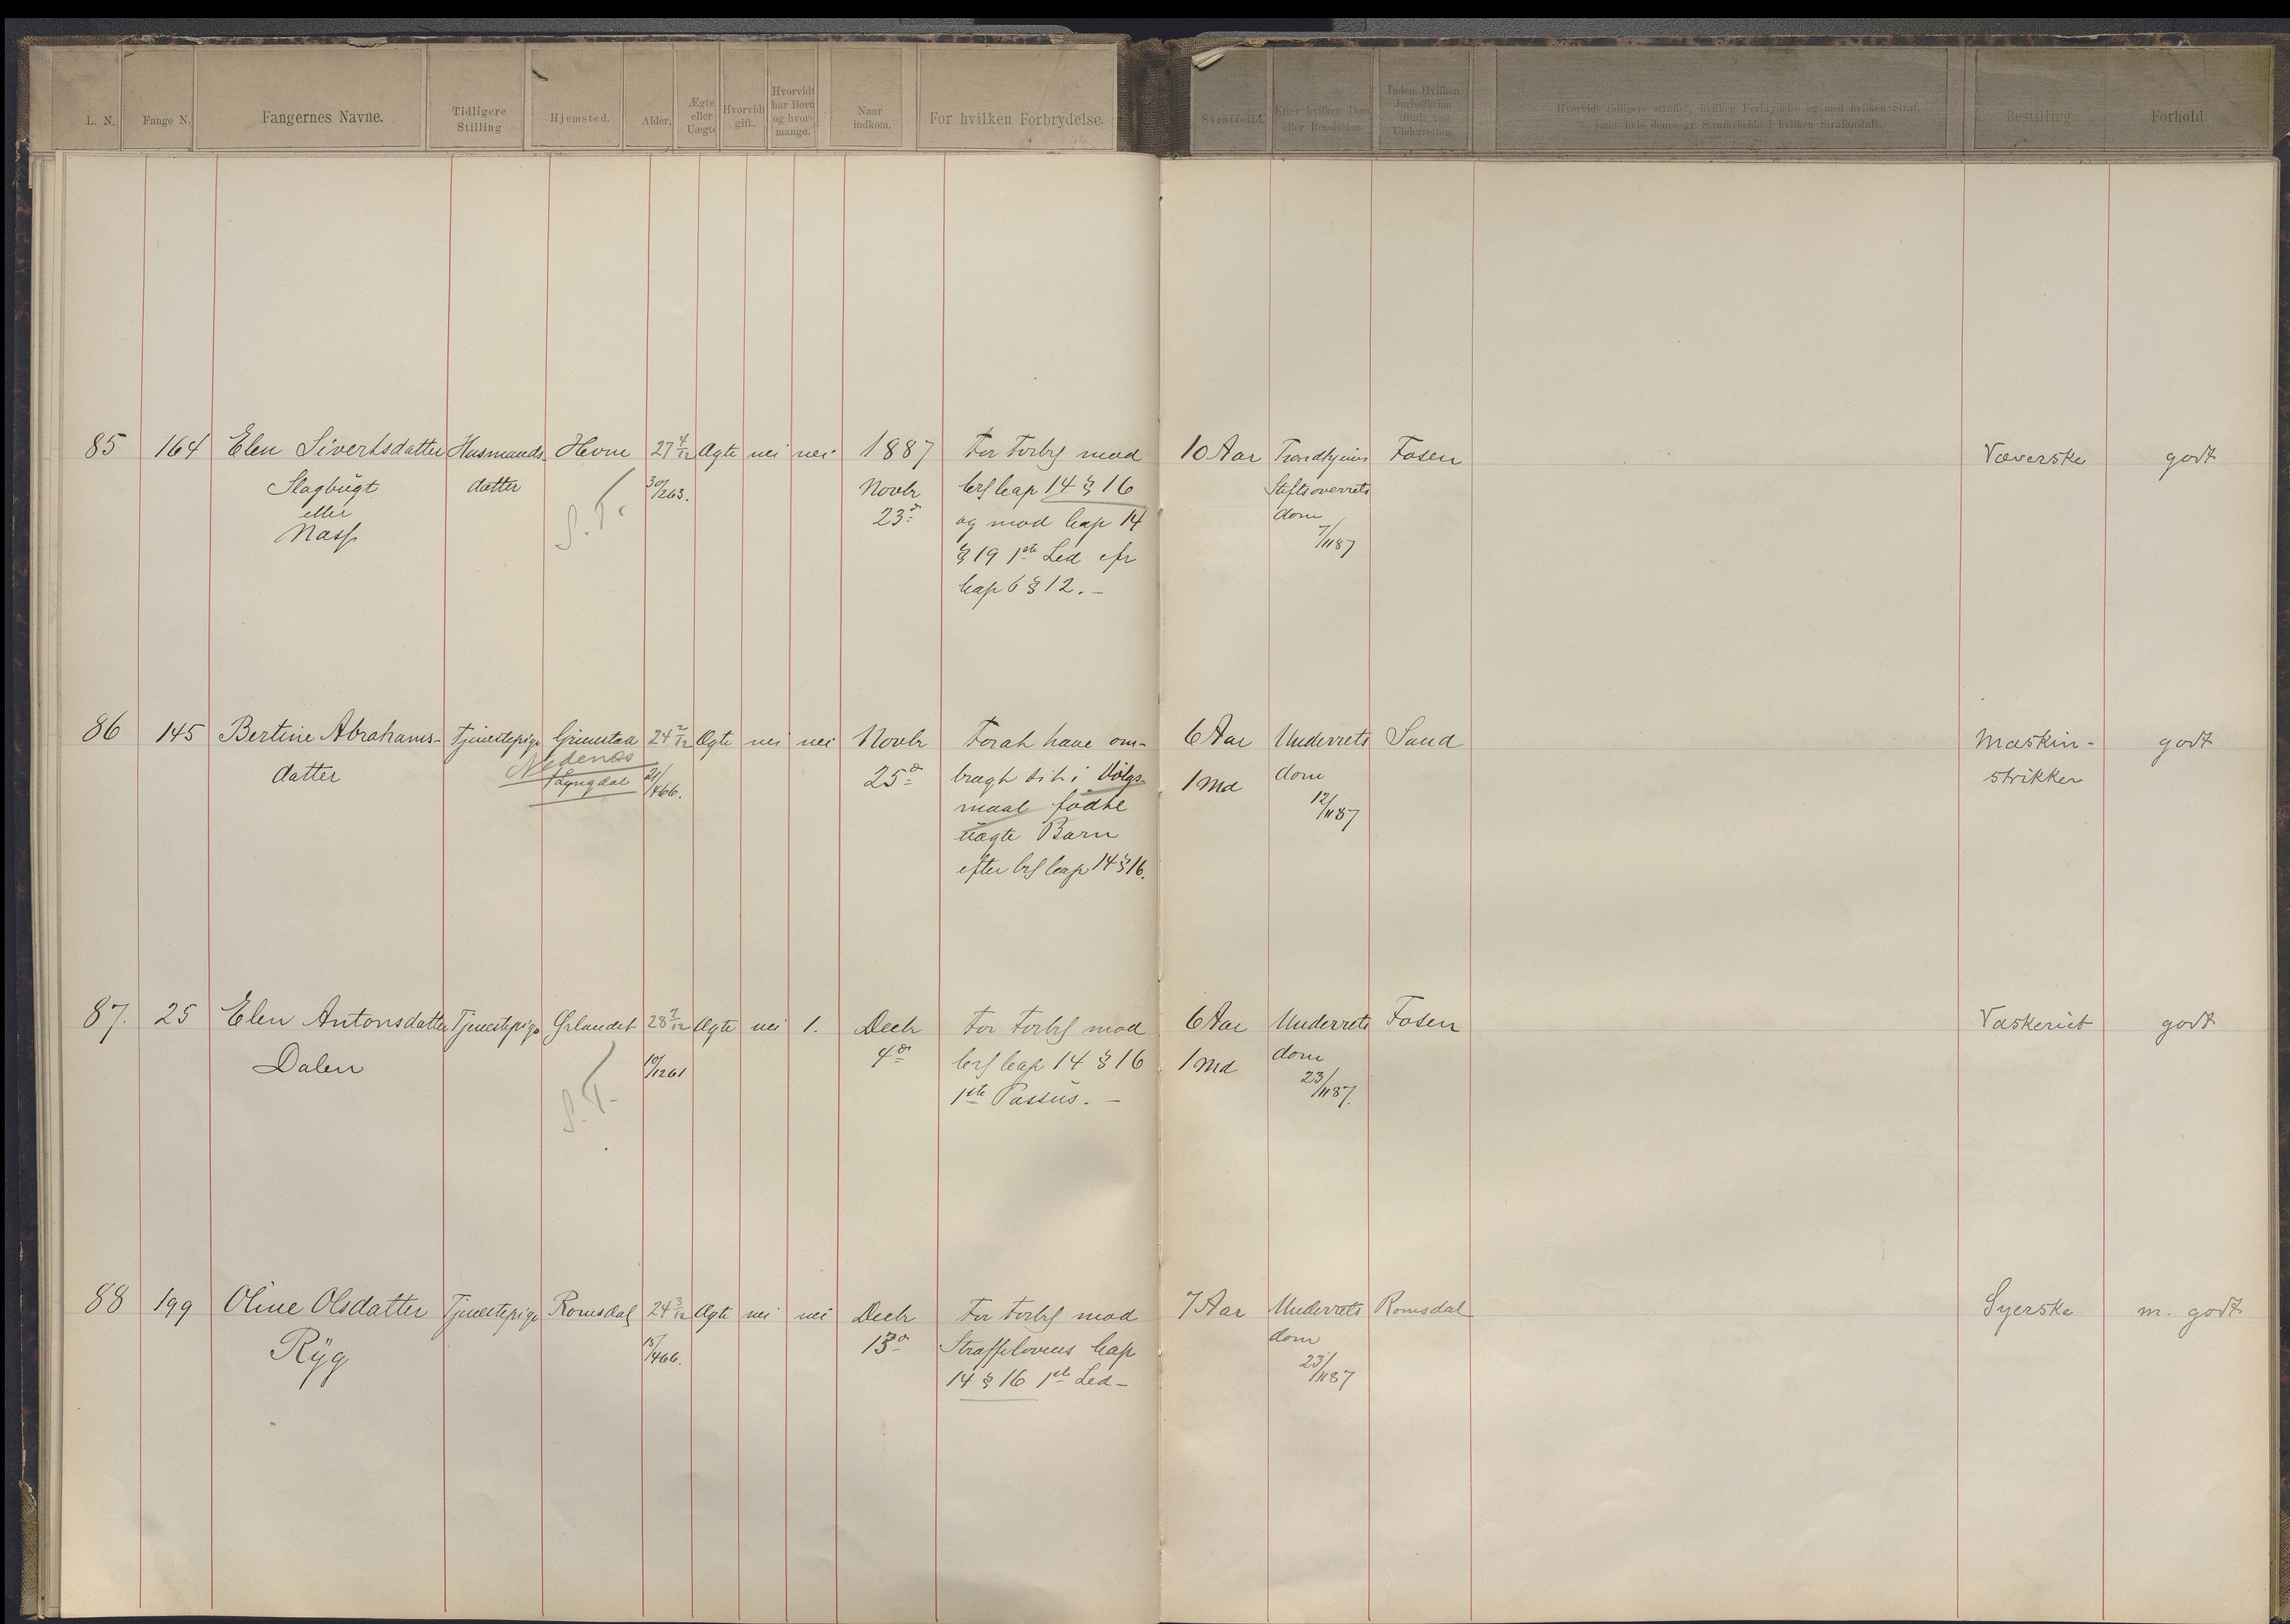 L. N.
Fange N.
Fangernes Navne.
Tidligere
Stilling
Hjemsted.
Alder.
Ægte
eller
Uægte
Hvorvidt
gift.
Hvorvidt
har Børn
og hvor-
mange.
Naar
indkom.
For hvilken Forbrydelse.
Straffetid.
Efter hvilken Dom
eller Resolution.
Inden Hvilken
Jurisdiktion
tiltalt ved
Underretten.
Hvorvidt tidligere straffet, hvilken Forbrydelse og med hvilken Straf,
samt hvis denne er Strafarbeide i hvilken Strafanstalt.
Bestilling
Forhold
85 164 Elen Sivertsdatter Husmands- Hevne 27 4/12 Ægte nei nei 1887 For Forbr mod 10 Aar Trondhjems Fosen Væverske godt
Slagbugt datter 30/263. Novbr Cap 14 § 16 Stiftsoverrets
eller S. T. 23de og mod Cap 14 dom
§ 19 1ste Led cfr 7/1187
Cap 6 § 12. –
86 145 Bertine Abrahams- Tjenestepige Grimstad 24 7/12 Ægte nei nei Novbr For at have om- 6 Aar Underrets Sand Maskin- godt
datter Nedenæs 25de bragt sit i Dølgs- 1 Md dom strikker
Lyngdal 21/466. maal fødte 12/1187
uægte Barn
efter Cap 14 § 16.
87. 25 Elen Antonsdatter Tjenestepige Ørlandet 28 7/12 Ægte nei 1. Decbr For Forbr mod 6 Aar Underrets Fosen Vaskeriet godt
Dalen 10/1261 4de Cap 14 § 16 1 Md dom
S. T. 1ste Passus. – 23/1187.
88 199 Oline Olsdatter Tjenestepige Romsdal 24 3/12 Ægte nei nei Decbr For Forbr mod 7 Aar Underrets Romsdal Syerske m. godt
Ryg 15/466. 13de Straffelovens Cap dom
14 § 16 1ste Led – 23/1187